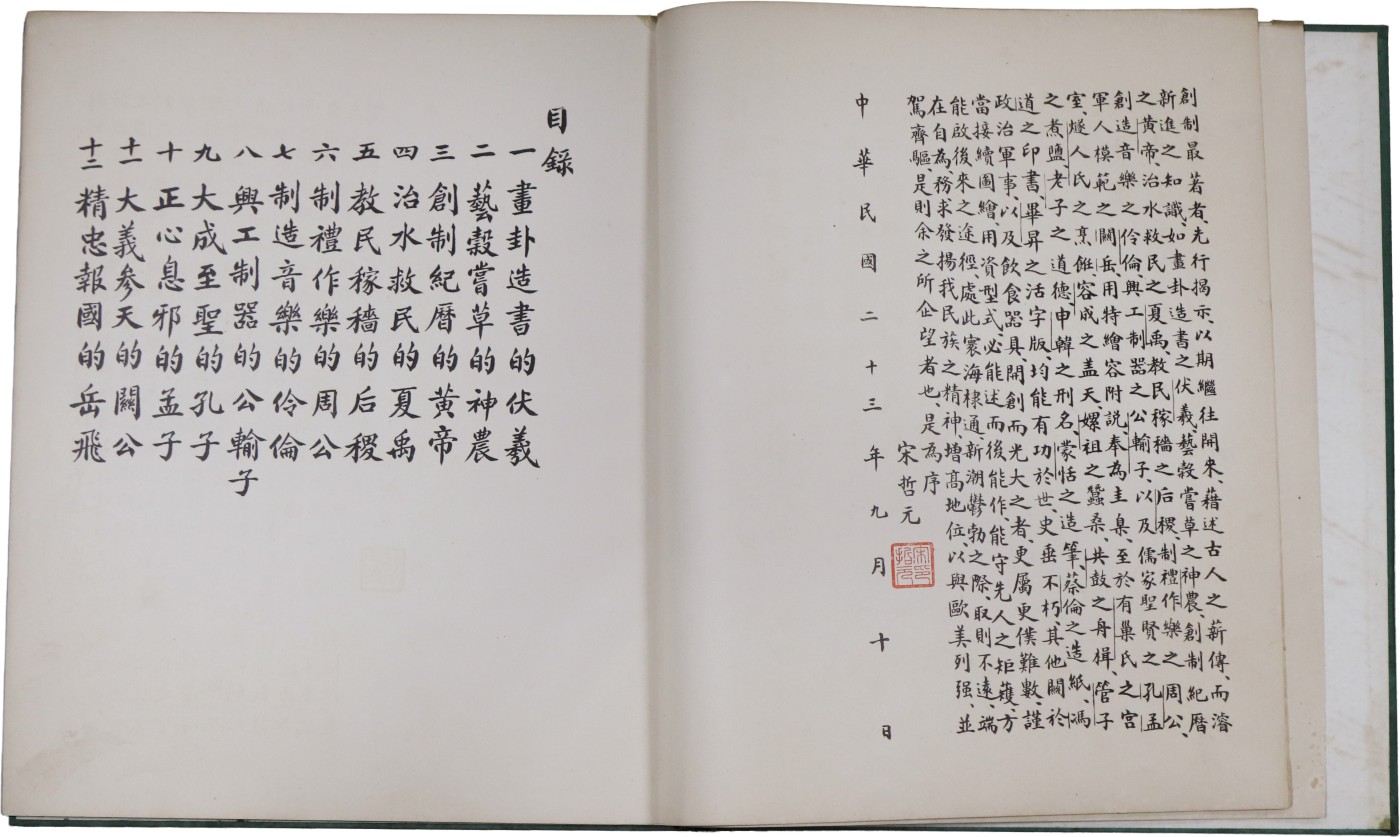 創制最著者、先行揭示、以期繼往開來、藉述古人之薪傳、而濬
新進之知識、如畫卦造書之伏羲、藝穀嘗草之神農、創制紀曆
之黃帝、治水救民之夏禹、教民稼穡之后稷、制禮作樂之周公、
創造音樂之伶倫、興工制器之公輸子、以及儒家聖賢之孔孟
軍人模範之關岳、用特繪容附說、奉為圭臬、至於有巢氏之宮
室、燧人氏之烹飪、容成之盖天、嫘祖之蠶桑、共鼓之舟楫、管子
之煮鹽、老子之道德、申韓之刑名、蒙恬之造筆、蔡倫之造紙、馮
道之印書、畢昇之活字版、均能有功於世、史垂不朽、其他關於
政治軍事、以及飲食器具、開創而光大之者、更屬更僕難數、謹
當接續圖繪、用資型式、必能述而後能作、能守先人之矩矱、方
能啟後來之途徑、處此寰海棣通、新潮鬱勃之際、取則不遠、端
在自為、務求發揚我民族之精神、增高地位、以與歐美列强、並
駕齊驅、是則余之所企望者也、是為序
宋哲元
宋印哲元
中華民國二十三年九月十日
目錄
一 畫卦造書的伏羲
二 藝穀嘗草的神農
三 創制紀曆的黃帝
四 治水救民的夏禹
五 教民稼穡的后稷
六 制禮作樂的周公
七 制造音樂的伶倫
八 興工制器的公輸子
九 大成至聖的孔子
十 正心息邪的孟子
十一 大義參天的關公
十二 精忠報國的岳飛